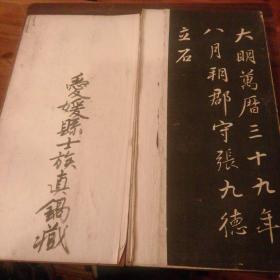 大明萬曆三十九年
八月朔郡守張九德
立石
愛媛縣士族真鍋藏